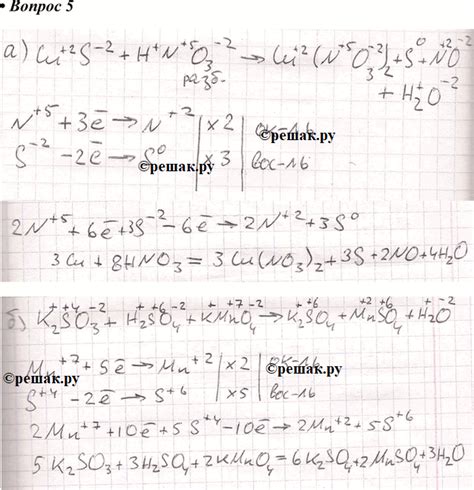 • Вопрос 5
а) Cu⁺²S⁻² + H⁺N⁺⁵O₃⁻² → Cu⁺²(N⁺⁵O₃⁻²)₂ + S⁰ + N⁺²O⁻²
разб.
+ H₂⁺O⁻²
N⁺⁵ + 3ē → N⁺² | x 2 | ок-ль
S⁻² - 2ē → S⁰ | x 3 | вос-ль
©решак.ру
©решак.ру
2N⁺⁵ + 6ē + 3S⁻² - 6ē → 2N⁺² + 3S⁰
3Cu + 8HNO₃ = 3Cu(NO₃)₂ + 3S + 2NO + 4H₂O
б) K₂⁺S⁺⁴O₃⁻² + H₂⁺S⁺⁶O₄⁻² + K⁺Mn⁺⁷O₄⁻² → K₂⁺S⁺⁶O₄ + Mn⁺²S⁺⁶O₄ + H₂⁺O⁻²
Mn⁺⁷ + 5ē → Mn⁺² | x 2 | ок-ль
©решак.ру
©решак.ру
S⁺⁴ - 2ē → S⁺⁶ | x 5 | вос-ль
2Mn⁺⁷ + 10ē + 5S⁺⁴ - 10ē → 2Mn⁺² + 5S⁺⁶
5K₂SO₃ + 3H₂SO₄ + 2KMnO₄ = 6K₂SO₄ + 2MnSO₄ + 3H₂O